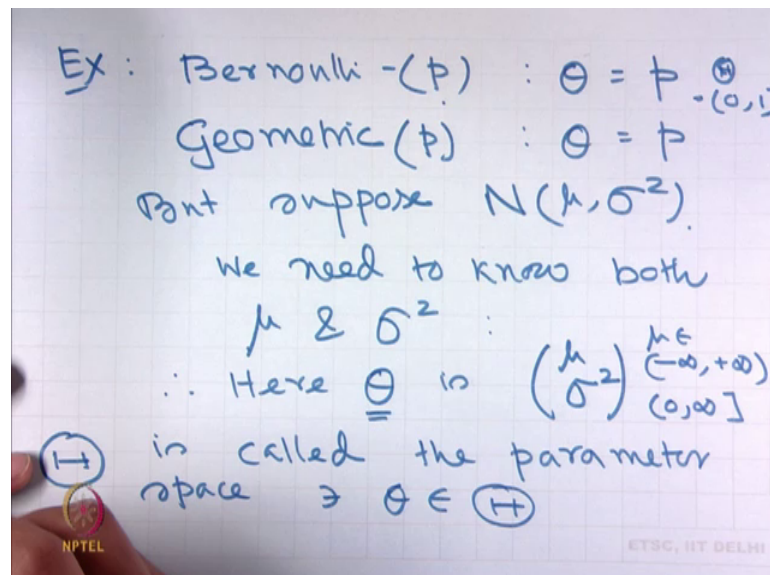 Ex : Bernoulli -(p) : θ = p Ⓗ -(0,1)
Geometric (p) : θ = p
But suppose N(μ, σ²).
We need to know both
μ & σ² :
∴ Here θ is (μ σ²) μ ∈ (-∞, +∞) (0, ∞]
Ⓗ is called the parameter
space ∋ θ ∈ Ⓗ
NPTEL
ETSC, IIT DELHI